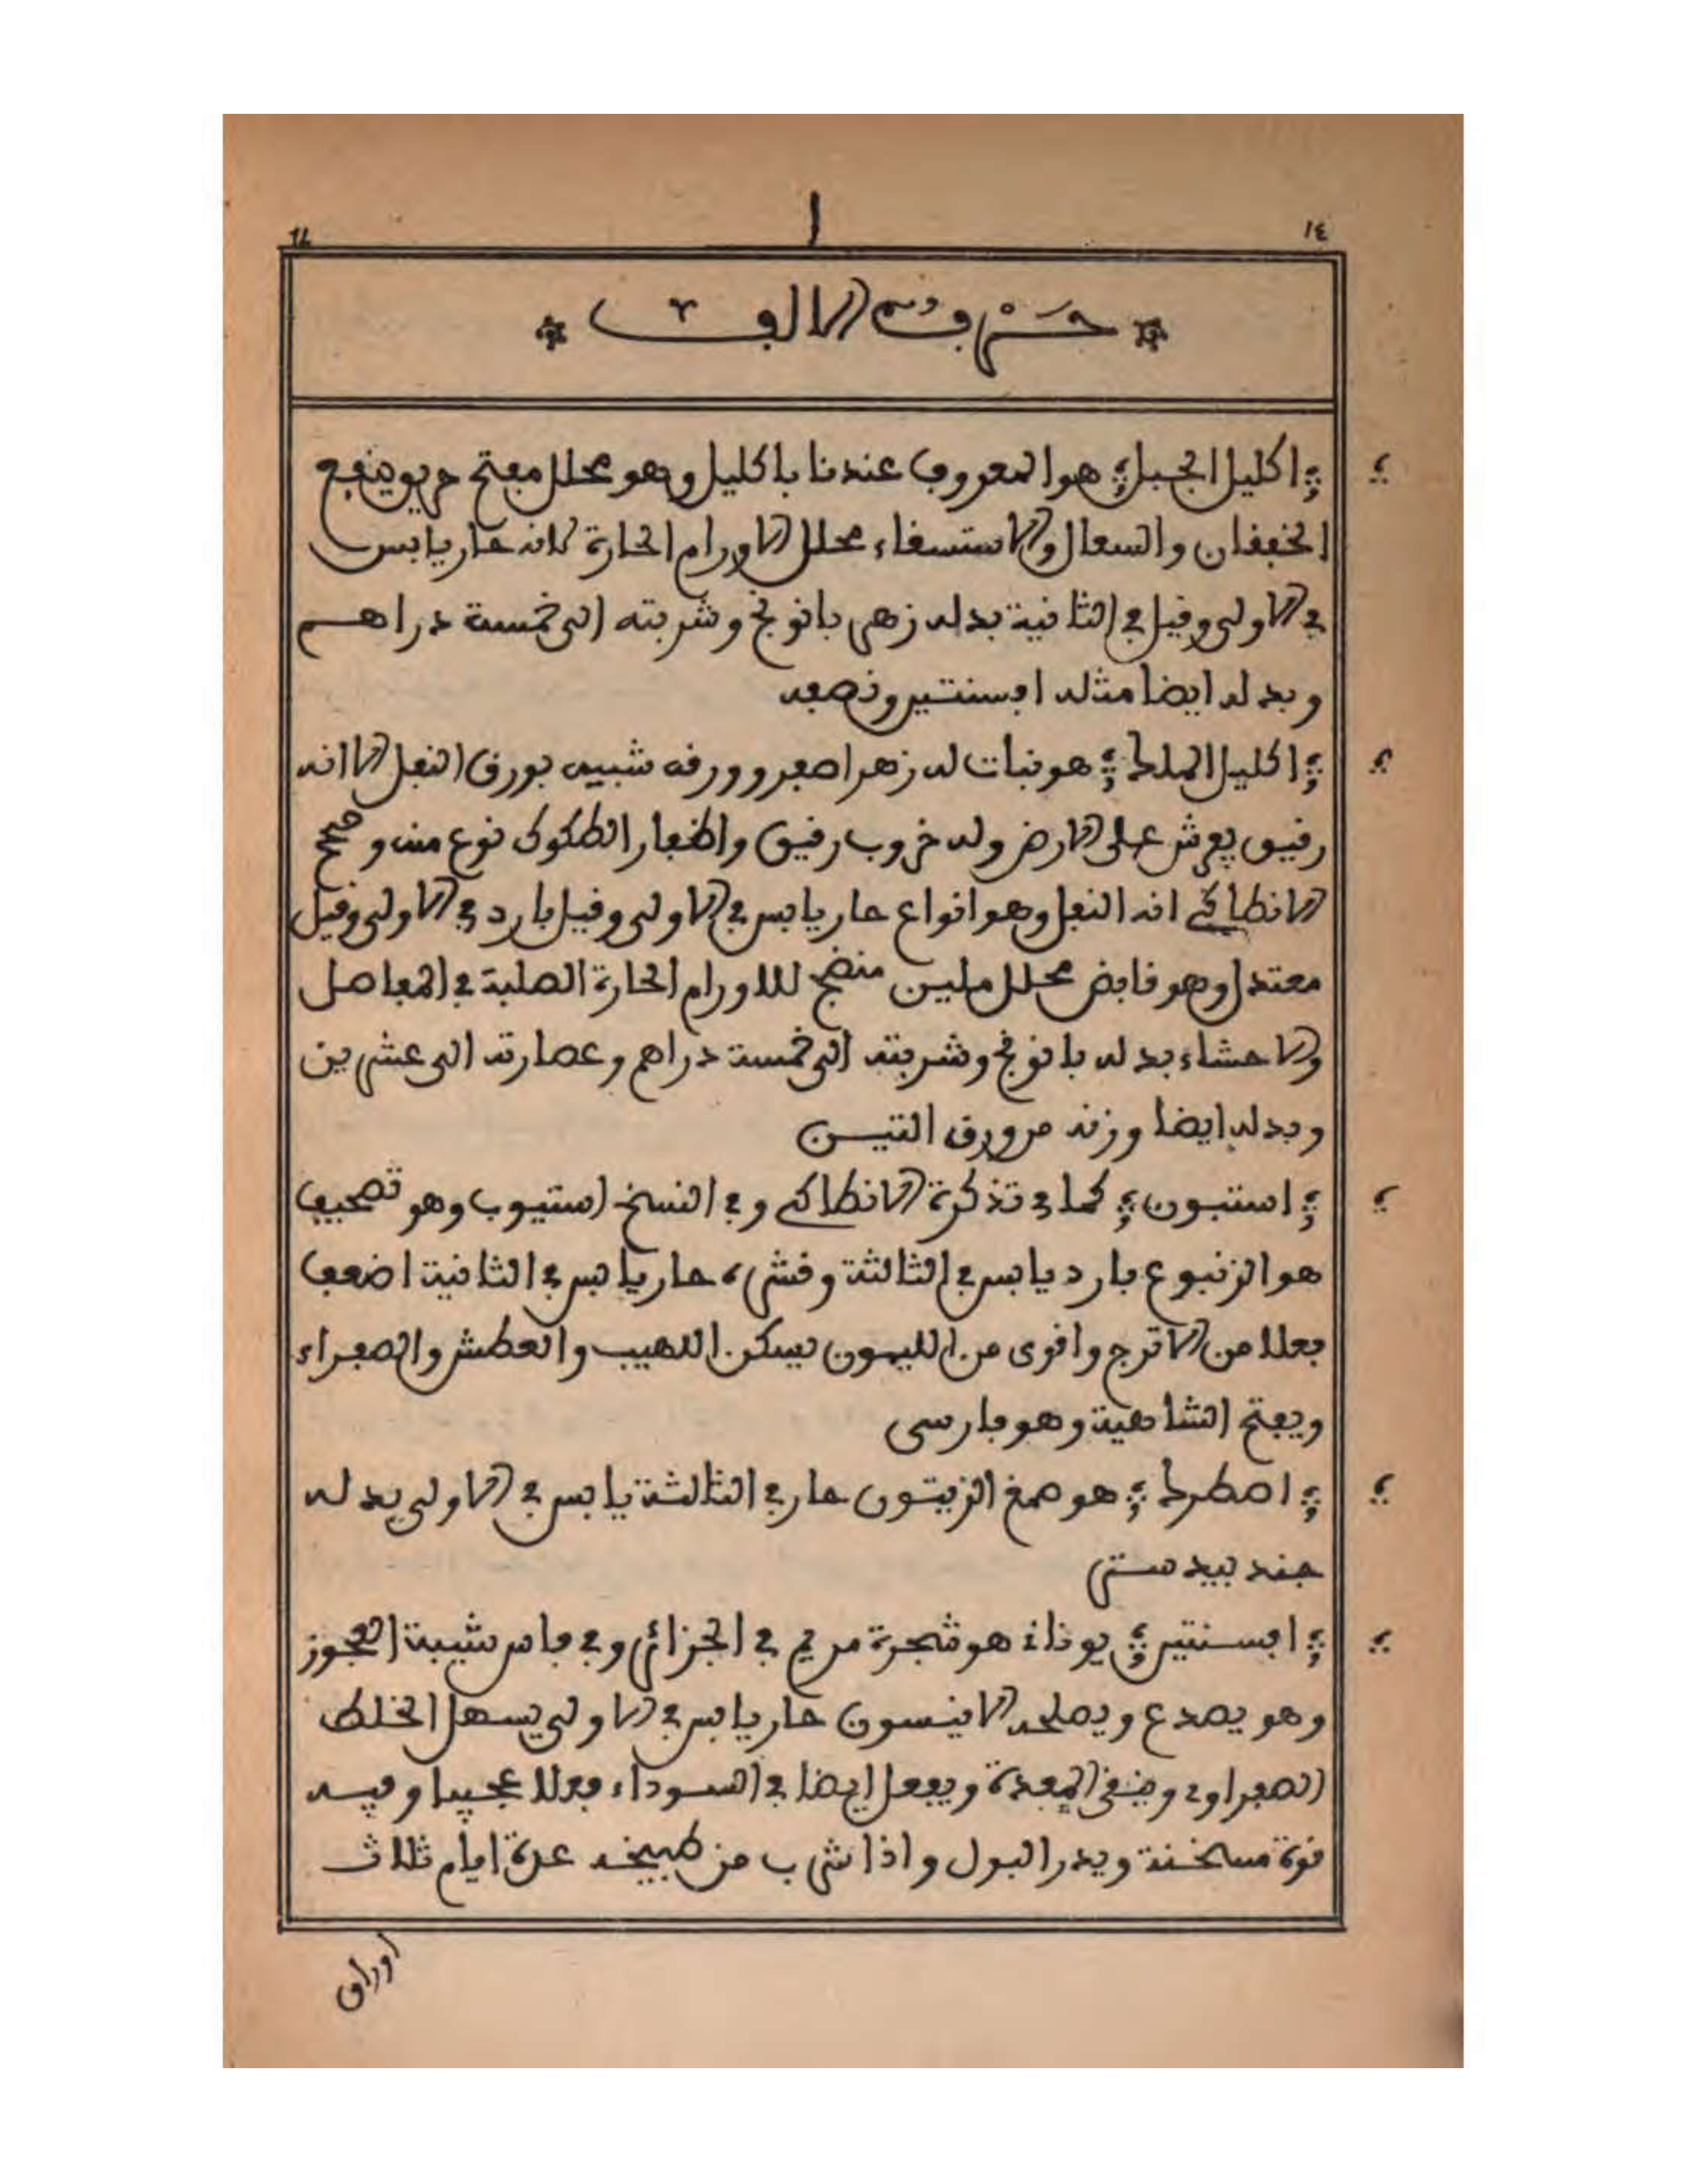 ا
١٤
14
حَرْفُ الالف
اكليل الجبل هو المعروف عندنا باكليل وهو محلل مفتح حريف ينفع
الخفقان والسعال والاستسقاء محلل الاورام الحارة لانه حار يابس
في الاولى وقيل في الثانية بدله زهر بانونج وشربته الى خمسة دراهم
وبدله ايضا مثله افسنتين ونصفه
اكليل الملك هو نبات له زهر اصفر وورقه شبيه بورق النفل الا انه
رقيق يعرش على الارض وله خروب رقيق واظفار الطكوك نوع منه وصحح
الانطاكي انه النفل وهو انواع حار يابس في الاولى وقيل بارد في الاولى وقيل
معتدل وهو قابض محلل ملين منضج للاورام الحارة الصلبة في المفاصل
والاحشاء بدله بانونج وشربته الى خمسة دراهم وعصارته الى عشرين
وبدله ايضا وزنه من ورق التين
استنبون كما في تذكرة الانطاكي وفي النسخ استيوب وهو تصحيف
هو الزنبوع بارد يابس في الثالثة وقشره حار يابس في الثانية اضعف
فعلا من الاترج واقوى من الليمون يسكن اللهيب والعطش والصفراء
ويفتح الشاهية وهو فارسي
اصطرك هو صمغ الزيتون حار في الثالثة يابس في الاولى بدله
جند بيدستر
افسنتين يونان هو شجرة مريم في الجزائر وفي فاس شيبة العجوز
وهو يصدع ويصلحه الانيسون حار يابس في الاولى يسهل الخلط
الصفراوي وينقي المعدة ويفعل ايضا في السوداء فعلا عجيبا وفيه
قوة مسخنة ويدر البول واذا شرب من طبيخه عدة ايام ثلاث
اوراق